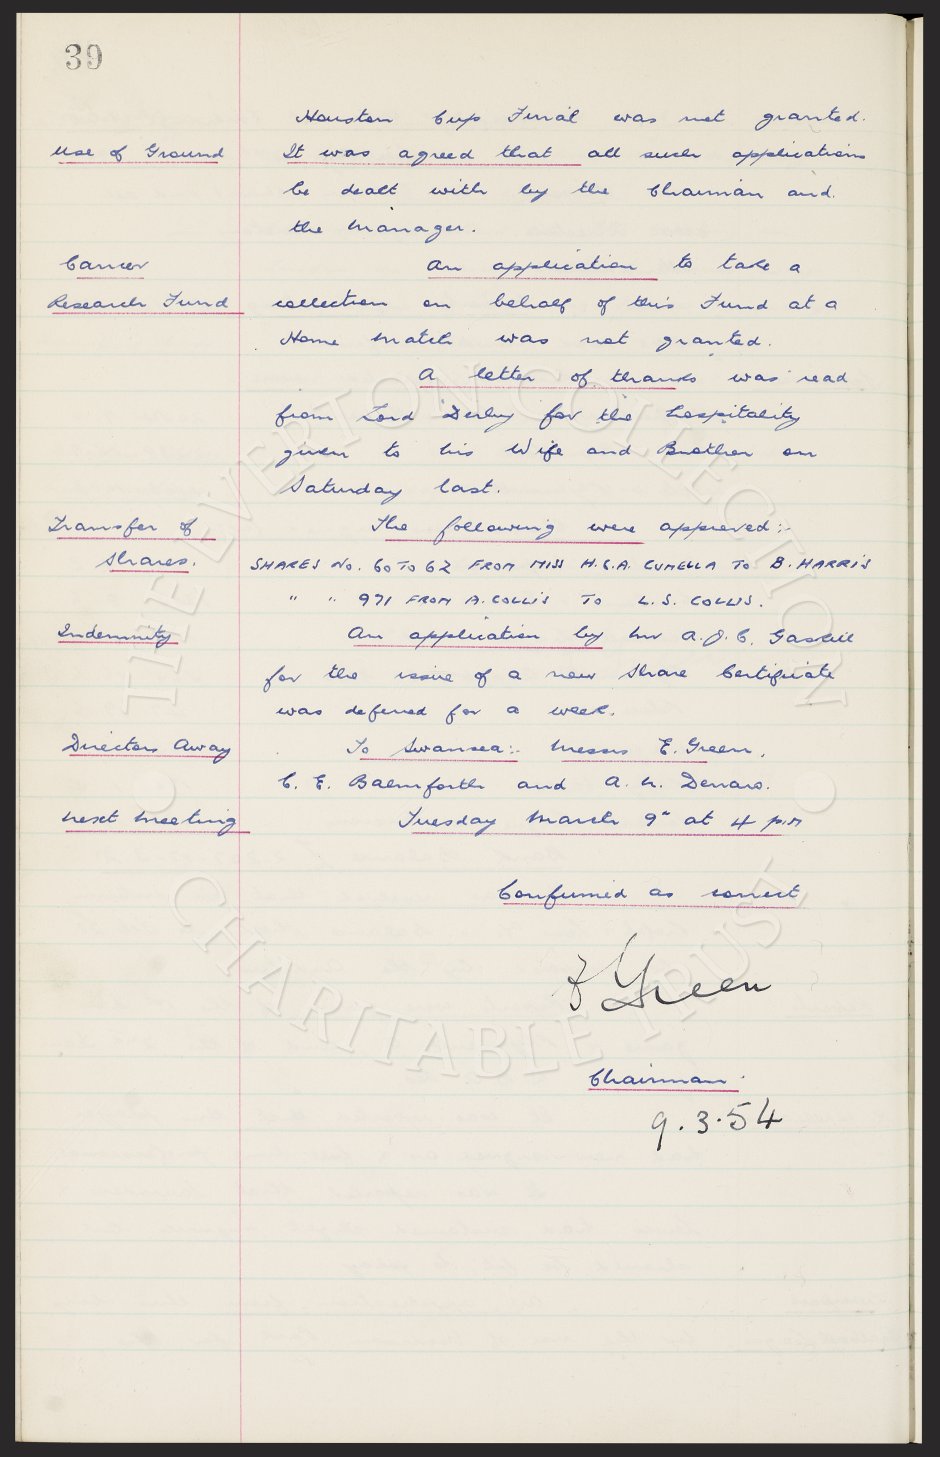 39
Houston Cup Final was not granted.
Use of Ground It was agreed that all such applications
be dealt with by the Chairman and
the Manager.
Cancer An application to take a
Research Fund collection on behalf of this Fund at a
Home Match was not granted.
A letter of thanks was read
from Lord Derby for the hospitality
given to his Wife and Brother on
Saturday last.
Transfer of The following were approved :-
Shares. SHARES No. 60 TO 62 FROM MISS H.C.A. CUMELLA TO B. HARRIS
" " 971 FROM A. COLLIS TO L.S. COLLIS.
Indemnity An application by Mr A.J.C. Gaskill
for the issue of a new Share Certificate
was deferred for a week.
Directors Away To Swansea :- Messrs E. Green,
C. E. Balmforth and A. N. Denaro.
Next Meeting Tuesday March 9" at 4 p.m
Confirmed as correct
Green
Chairman.
9.3.54
THE EVERTON COLLECTION
CHARITABLE TRUST